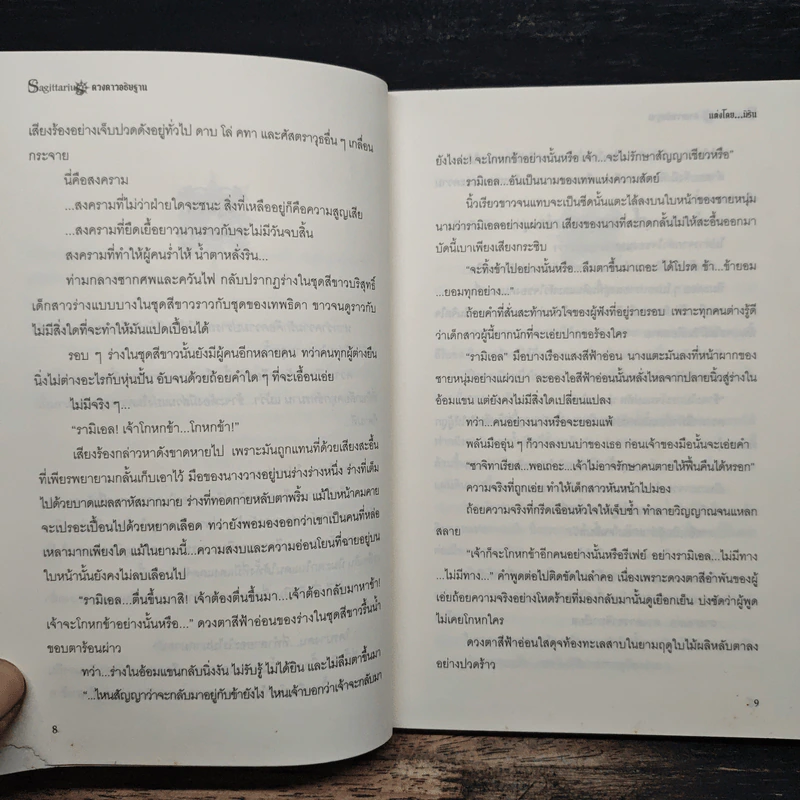 Sagittarius ดวงดาวอธิษฐาน
เสียงร้องอย่างเจ็บปวดดังอยู่ทั่วไป ดาบ โล่ คทา และศัสตราวุธอื่น ๆ เกลื่อน
กระจาย
นี่คือสงคราม
...สงครามที่ไม่ว่าฝ่ายใดจะชนะ สิ่งที่เหลืออยู่ก็คือความสูญเสีย
...สงครามที่ยืดเยื้อยาวนานราวกับจะไม่มีวันจบสิ้น
สงครามที่ทำให้ผู้คนร่ำไห้ น้ำตาหลั่งริน...
ท่ามกลางซากศพและควันไฟ กลับปรากฏร่างในชุดสีขาวบริสุทธิ์
เด็กสาวร่างแบบบางในชุดสีขาวราวกับชุดของเทพธิดา ขาวจนดูราวกับ
ไม่มีสิ่งใดที่จะทำให้มันแปดเปื้อนได้
รอบ ๆ ร่างในชุดสีขาวนั้นยังมีผู้คนอีกหลายคน ทว่าคนทุกผู้ต่างยืน
นิ่งไม่ต่างอะไรกับหุ่นปั้น อับจนด้วยถ้อยคำใด ๆ ที่จะเอื้อนเอ่ย
ไม่มีจริง ๆ...
“รามิเอล! เจ้าโกหกข้า...โกหกข้า!”
เสียงร้องกล่าวหาดังขาดหายไป เพราะมันถูกแทนที่ด้วยเสียงสะอื้น
ที่เพียรพยายามกลั้นเก็บเอาไว้ มือของนางวางอยู่บนร่างร่างหนึ่ง ร่างที่เต็ม
ไปด้วยบาดแผลสาหัสมากมาย ร่างที่ทอดกายหลับตาพริ้ม แม้ใบหน้าคมคาย
จะเปรอะเปื้อนไปด้วยหยาดเลือด ทว่ายังพอมองออกว่าเขาเป็นคนที่หล่อ
เหลามากเพียงใด แม้ในยามนี้...ความสงบและความอ่อนโยนที่ฉายอยู่บน
ใบหน้านั้นยังคงไม่ลบเลือนไป
“รามิเอล...ตื่นขึ้นมาสิ! เจ้าต้องตื่นขึ้นมา...เจ้าต้องกลับมาหาข้า!
เจ้าจะโกหกข้าอย่างนั้นหรือ...” ดวงตาสีฟ้าอ่อนของร่างในชุดสีขาวรื้นน้ำ
ขอบตาร้อนผ่าว
ทว่า...ร่างในอ้อมแขนกลับนิ่งงัน ไม่รับรู้ ไม่ได้ยิน และไม่ลืมตาขึ้นมา
“...ไหนสัญญาว่าจะกลับมาอยู่กับข้ายังไง ไหนเจ้าบอกว่าเจ้าจะกลับมา
8
แต่งโดย...มิริน
ยังไงล่ะ! จะโกหกข้าอย่างนั้นหรือ เจ้า...จะไม่รักษาสัญญาเชียวหรือ”
รามิเอล...อันเป็นนามของเทพแห่งความสัตย์
นิ้วเรียวขาวจนแทบจะเป็นซีดนั้นแตะไล้ลงบนใบหน้าของชายหนุ่ม
นามว่ารามิเอลอย่างแผ่วเบา เสียงของนางที่สะกดกลั้นไม่ให้สะอื้นออกมา
บัดนี้เบาเพียงเสียงกระซิบ
“จะทิ้งข้าไปอย่างนั้นหรือ...ลืมตาขึ้นมาเถอะ ได้โปรด ข้า...ข้ายอม
...ยอมทุกอย่าง...”
ถ้อยคำที่สั่นสะท้านหัวใจของผู้ฟังที่อยู่รายรอบ เพราะทุกคนต่างรู้ดี
ว่าเด็กสาวผู้นี้ยากนักที่จะเอ่ยปากขอร้องใคร
“รามิเอล” มือบางเรืองแสงสีฟ้าอ่อน นางแตะมันลงที่หน้าผากของ
ชายหนุ่มอย่างแผ่วเบา ละอองไอสีฟ้าอ่อนนั้นหลั่งไหลจากปลายนิ้วสู่ร่างใน
อ้อมแขน แต่ยังคงไม่มีสิ่งใดเปลี่ยนแปลง
ทว่า...คนอย่างนางหรือจะยอมแพ้
พลันมืออุ่น ๆ ก็วางลงบนบ่าของเธอ ก่อนเจ้าของมือนั้นจะเอ่ยคำ
“ซาจิทาเรียส...พอเถอะ...เจ้าไม่อาจรักษาคนตายให้ฟื้นคืนได้หรอก”
ความจริงที่ถูกเอ่ย ทำให้เด็กสาวหันหน้าไปมอง
ถ้อยความจริงที่กรีดเฉือนหัวใจให้เจ็บช้ำ ทำลายวิญญาณจนแหลก
สลาย
“เจ้าก็จะโกหกข้าอีกคนอย่างนั้นหรือรีเฟย์ อย่างรามิเอล...ไม่มีทาง
...ไม่มีทาง...” คำพูดต่อไปติดขัดในลำคอ เนื่องเพราะดวงตาสีอำพันของผู้
เอ่ยถ้อยความจริงอย่างโหดร้ายที่มองกลับมานั้นดูเยือกเย็น บ่งชัดว่าผู้พูด
ไม่เคยโกหกใคร
ดวงตาสีฟ้าอ่อนใสดุจท้องทะเลสาบในยามฤดูใบไม้ผลิหลับตาลง
อย่างปวดร้าว
9